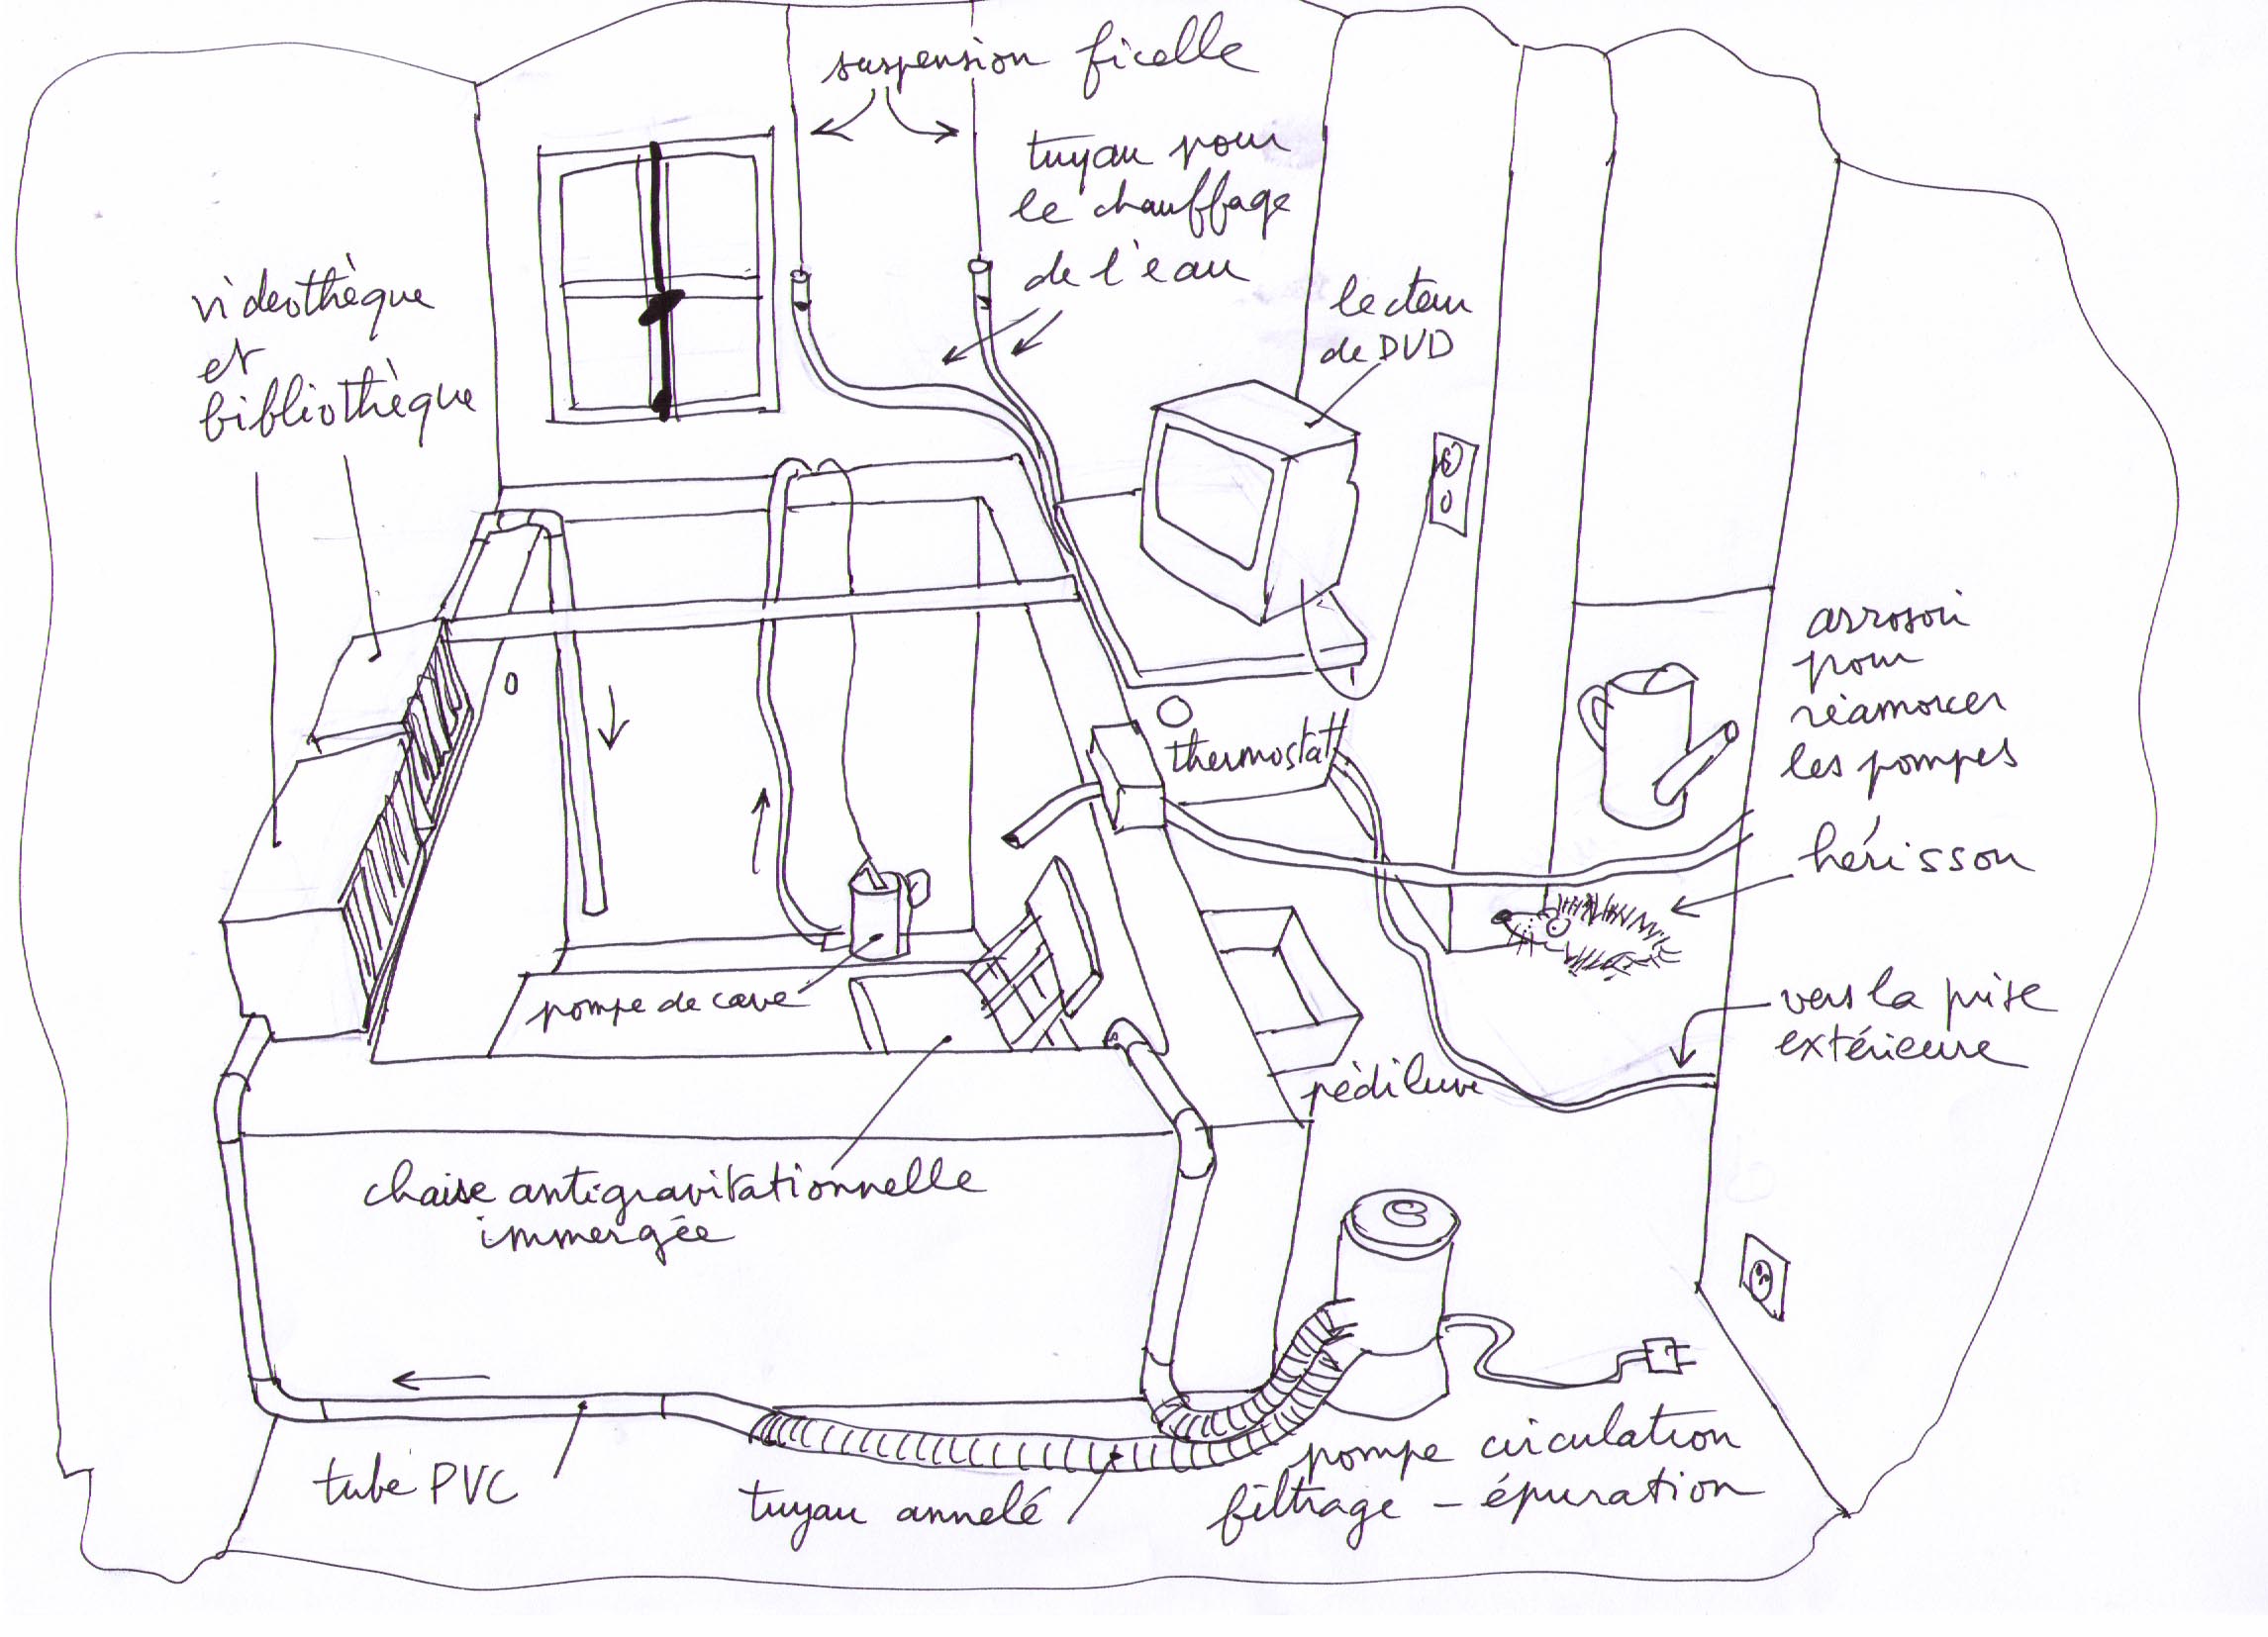 suspension ficelle
tuyau pour
le chauffage
de l'eau
videothèque
et
bibliothèque
lecteur
de DVD
arrosoir
pour
réamorcer
les pompes
thermostat
hérisson
vers la prise
extérieure
pompe de cave
pédiluve
chaise antigravitationnelle
immergée
tube PVC
tuyau annelé
pompe circulation
filtrage - épuration